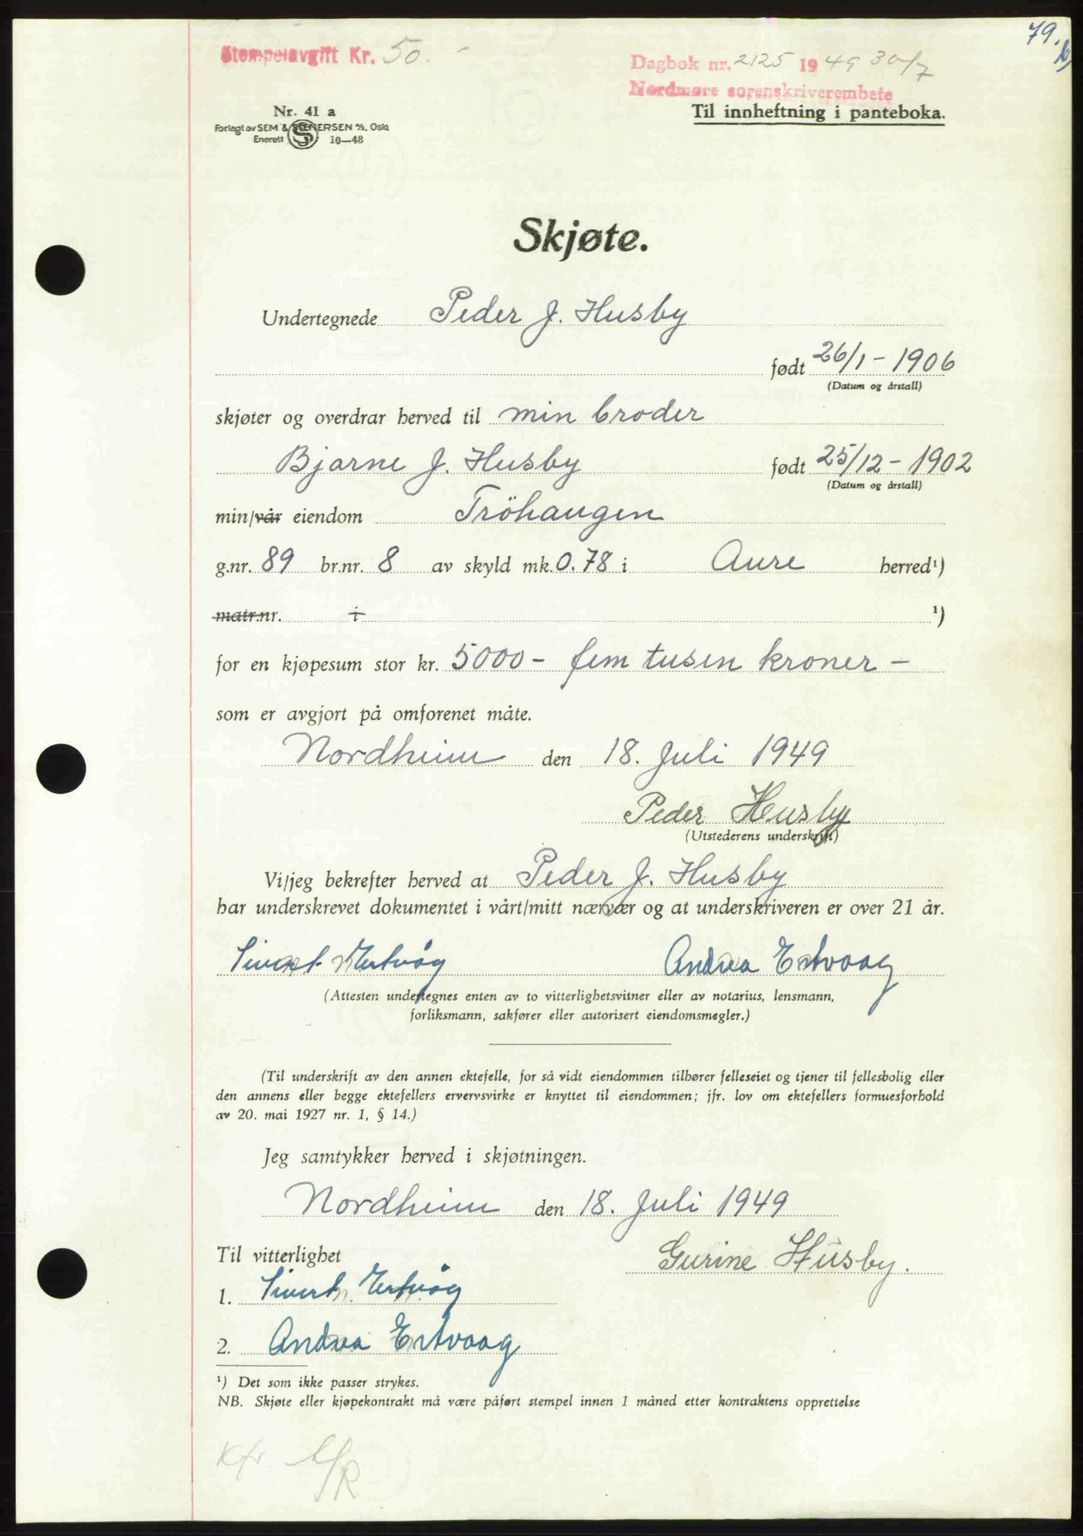 79.
Stempelavgift Kr. 50.-
Dagbok nr. 2125 1949 30/7
Nordmøre sorenskriverembete
Til innheftning i panteboka.
Nr. 41 a
Forlagt av SEM & STENERSEN A/S, Oslo
Enerett 10—48
Skjøte.
Undertegnede Peder J. Husby
født 26/1 - 1906
(Datum og årstall)
skjøter og overdrar herved til min broder
Bjarne J. Husby født 25/12 - 1902
(Datum og årstall)
min/vår eiendom Tröhaugen
g.nr. 89 br.nr. 8 av skyld mk. 0.78 i Aure herred¹)
matr.nr. i ¹)
for en kjøpesum stor kr. 5000 - fem tusen kroner -
som er avgjort på omforenet måte.
Nordheim den 18. Juli 1949
Peder Husby
(Utstederens underskrift)
Vi/jeg bekrefter herved at Peder J. Husby
har underskrevet dokumentet i vårt/mitt nærvær og at underskriveren er over 21 år.
Sivert Ertvåg Andrea Ertvaag
(Attesten undertegnes enten av to vitterlighetsvitner eller av notarius, lensmann,
forliksmann, sakfører eller autorisert eiendomsmegler.)
(Til underskrift av den annen ektefelle, for så vidt eiendommen tilhører felleseiet og tjener til fellesbolig eller
den annens eller begge ektefellers ervervsvirke er knyttet til eiendommen; jfr. lov om ektefellers formuesforhold
av 20. mai 1927 nr. 1, § 14.)
Jeg samtykker herved i skjøtningen.
Nordheim den 18. Juli 1949
Til vitterlighet
Gurine Husby.
1. Sivert Ertvåg
2. Andrea Ertvaag
¹) Det som ikke passer strykes.
NB. Skjøte eller kjøpekontrakt må være påført stempel innen 1 måned etter kontraktens opprettelse
Kfr.